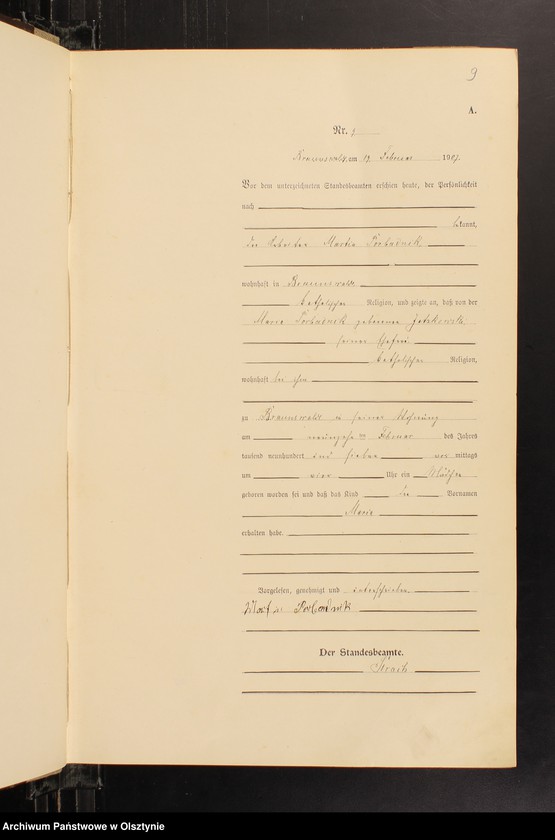 9
A.
Nr. 9
Braunswalde, am 19 Februar 1907.
Vor dem unterzeichneten Standesbeamten erschien heute, der Persönlichkeit
nach
bekannt,
der Arbeiter Martin
wohnhaft in Braunswalde
katholischer Religion, und zeigte an, daß von der
Maria geborene
seiner Ehefrau
katholischer Religion,
wohnhaft bei ihm
zu Braunswalde in seiner Wohnung
am neunzehnten Februar des Jahres
tausend neunhundert und sieben vor mittags
um vier Uhr ein Mädchen
geboren worden sei und daß das Kind den Vornamen
Maria
erhalten habe.
Vorgelesen, genehmigt und unterschrieben
Der Standesbeamte.
Archiwum Państwowe w Olsztynie